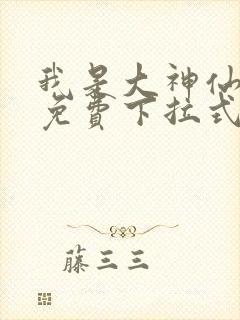 我是大神仙
免費下拉式
藤三三